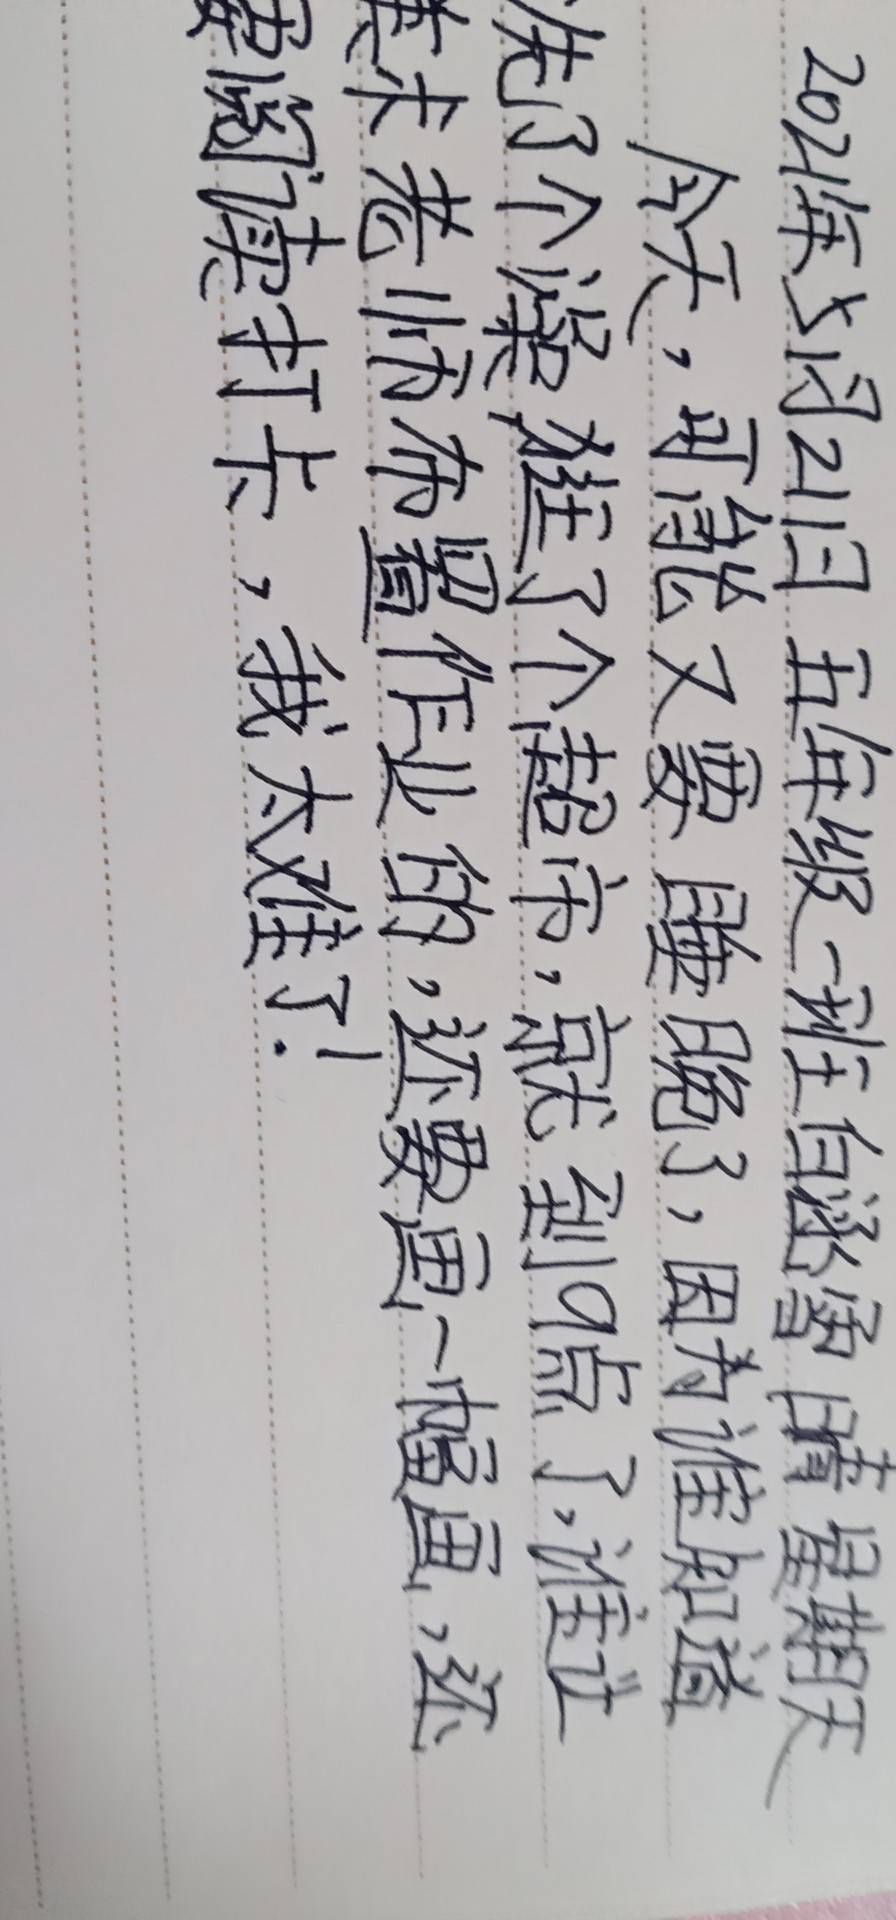 2021年5月21日 五年级一班 白泌雪 晴 星期天
今天，可能又要睡晚了，因为谁知道
洗了个澡，逛了个超市，就到9点了，谁让
美术老师布置作业的，还要画一幅画，还
要阅读打卡，我太难了！